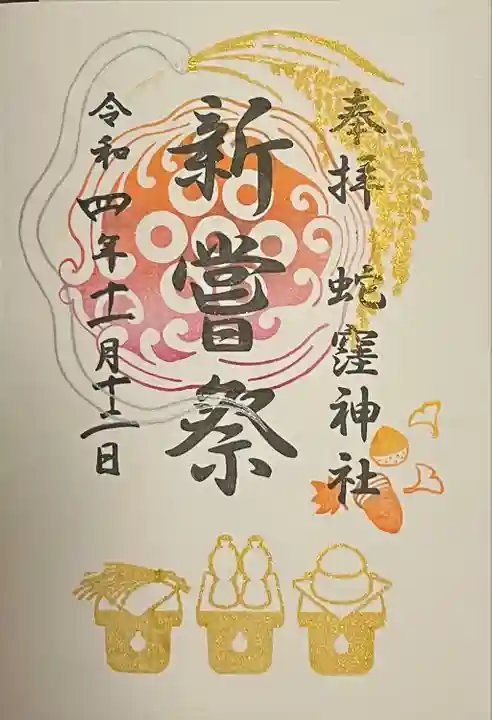 奉拝 蛇窪神社
新嘗祭
令和四年十一月十三日